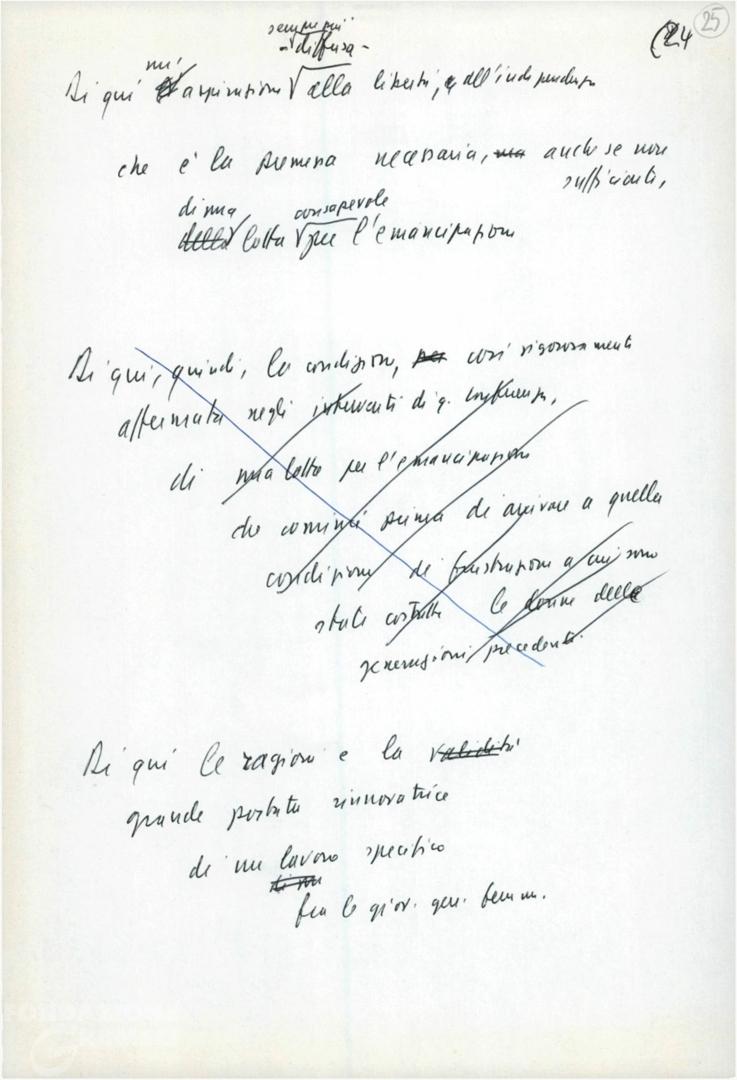 24 25
sempre più
- diffusa -
Di qui un' aspirazione alla libertà, e all'indipendenza
che è la premessa necessaria, ma anche se non
sufficiente,
di una consapevole
della lotta per l'emancipazione
Di qui, quindi, la condizione, per così rigorosamente
affermata negli interventi di q. conferenza,
di una lotta per l'emancipazione
che cominci prima di arrivare a quella
condizione di frustrazione a cui sono
state costrette le donne delle
generazioni precedenti.
Di qui le ragioni e la validità
grande portata rinnovatrice
di un lavoro specifico
di un
fra le giov. gen. femm.
FONDAZIONE
GRAMSCI